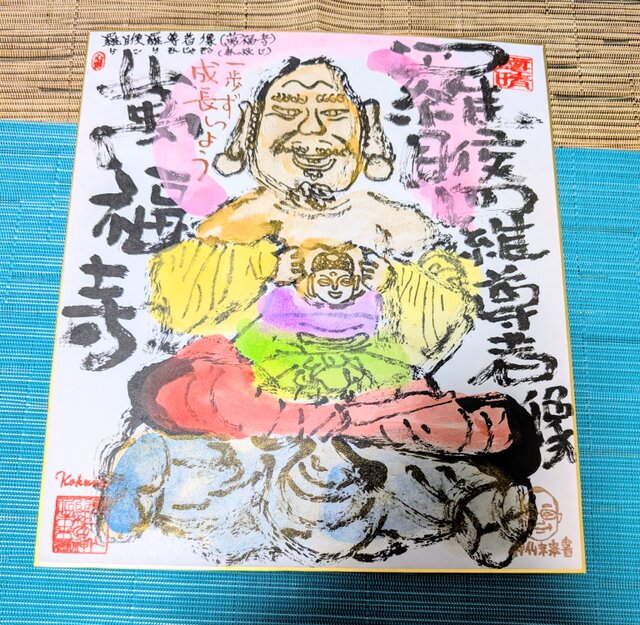 羅睺羅尊者像(萬福寺)
らごらそんじゃぞう(まんぷくじ)
一歩ずつ
成長しよう
羅睺羅尊者像
萬福寺